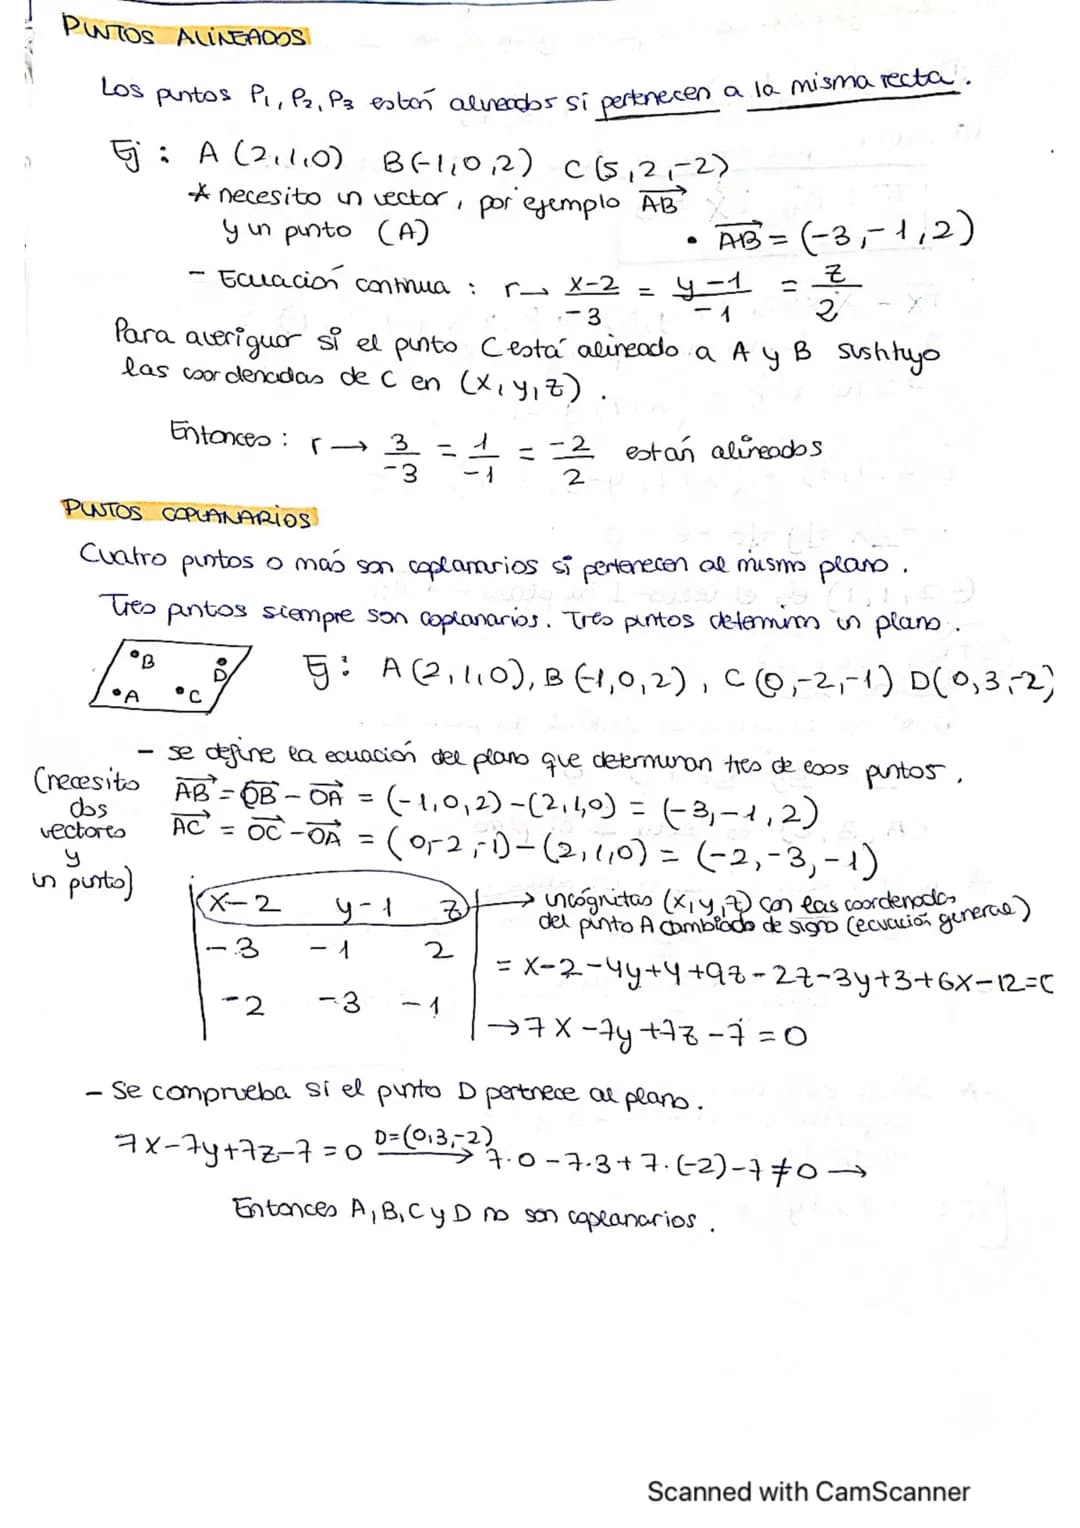 PUNTOS ALINEADOS
Los puntos P1, P2, P3 están alineados si pertenecen a la misma recta.
Ej: A (2,1,0) B(-1,0,2) C (5,2,-2)
* necesito un vector, por ejemplo AB
y un punto (A)
• AB = (-3,-1,2)
- Ecuación continua : r→ x-2/-3 = y-1/-1 = z/2
Para averiguar si el punto C está alineado a A y B sustituyo
las coordenadas de C en (x,y,z).
Entonces: r → 3/-3 = 1/-1 = -2/2 están alineados
PUNTOS COPLANARIOS
Cuatro puntos o más son coplanarios si pertenecen al mismo plano.
Tres puntos siempre son coplanarios. Tres puntos determinan un plano.
B
D
A
C
Ej: A (2,1,0), B (-1,0,2), C (0,-2,-1) D(0,3,-2)
- se define la ecuación del plano que determinan tres de esos puntos.
(necesito
dos
vectores
y
un punto)
AB = OB - OA = (-1,0,2)-(2,1,0) = (-3,-1,2)
AC = OC - OA = (0,-2,-1)-(2,1,0) = (-2,-3,-1)
x-2 y-1 z → incógnitas (x,y,z) con las coordenadas
del punto A cambiado de signo (ecuación general)
-3 -1 2
= x-2-4y+4+9z-2z-3y+3+6x-12=0
-2 -3 -1
→7x-7y+7z-7=0
- Se comprueba si el punto D pertnece al plano.
7x-7y+7z-7=0 D=(0,3,-2) → 7·0-7·3+7·(-2)-7≠0 →
Entonces A,B,C y D no son coplanarios.
Scanned with CamScanner